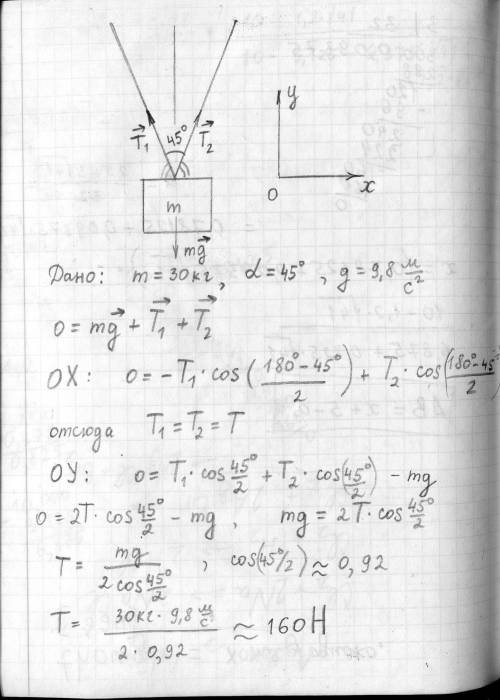 T⃗₁ 45° T⃗₂
y
0 x
m
mg⃗
Дано: m = 30 кг, α = 45°, g = 9,8 м/с²
0 = mg⃗ + T⃗₁ + T⃗₂
OX: 0 = -T₁·cos((180°-45°)/2) + T₂·cos((180°-45°)/2)
отсюда T₁ = T₂ = T
OУ: 0 = T₁·cos 45°/2 + T₂·cos(45°/2) - mg
0 = 2T·cos 45°/2 - mg, mg = 2T·cos 45°/2
T = mg/(2cos 45°/2), cos(45°/2) ≈ 0,92
T = (30кг · 9,8 м/с)/(2·0,92) ≈ 160Н